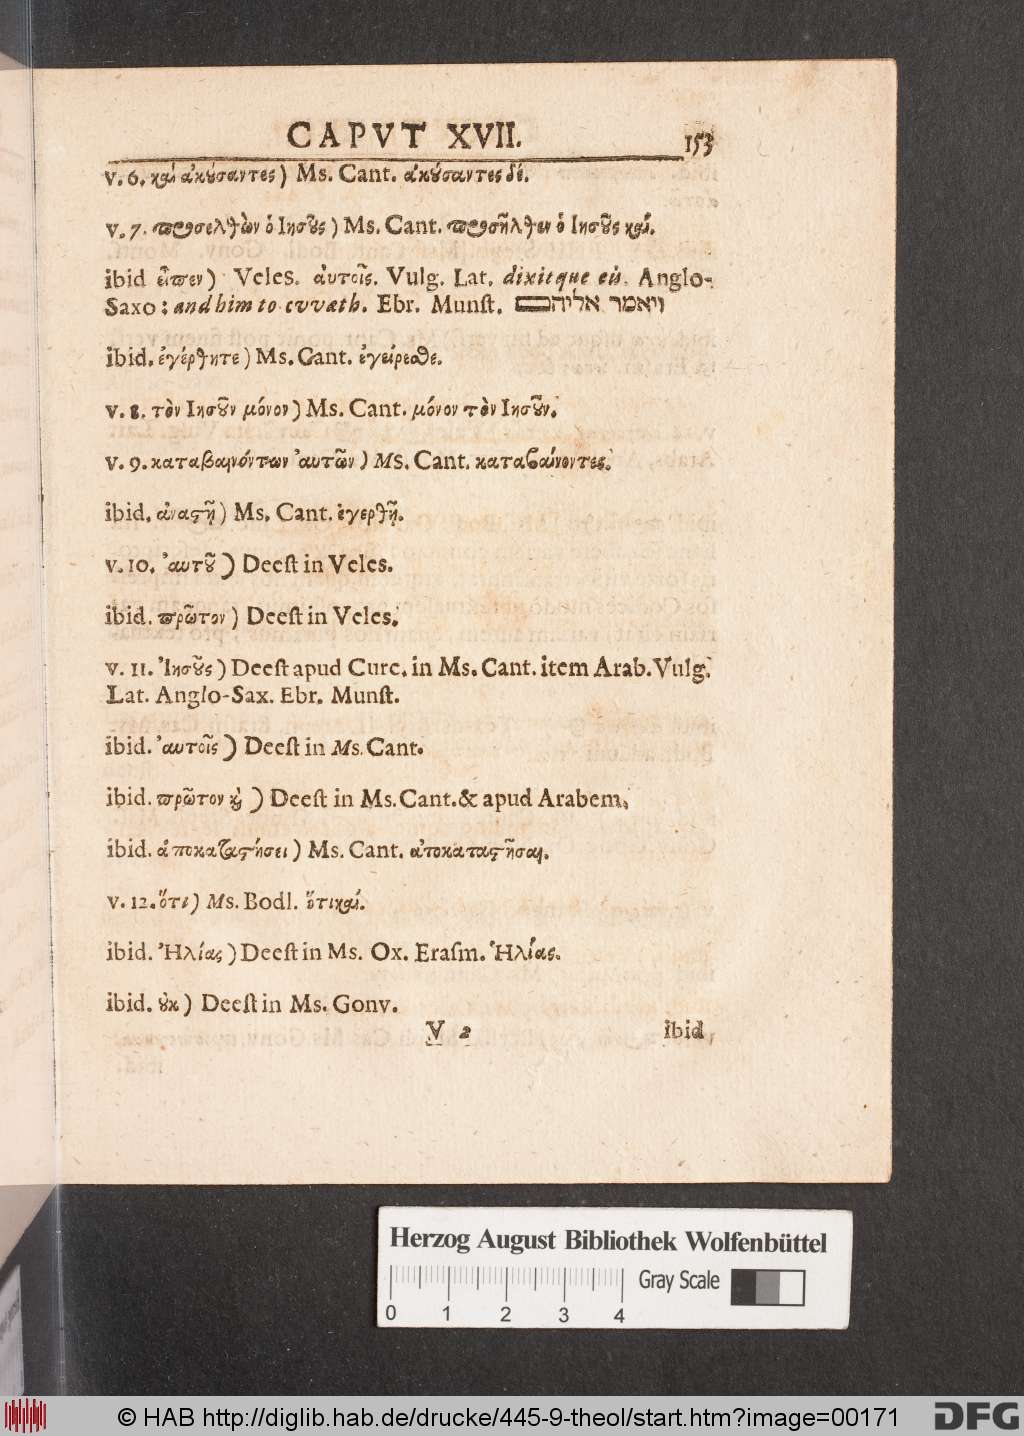 CAPVT XVII.
153
v. 6. καὶ ἀκούσαντες) Ms. Cant. ἀκούσαντες δέ.
v. 7. προσελθὼν ὁ Ιησοῦς) Ms. Cant. προσῆλθεν ὁ Ιησοῦς καὶ.
ibid εἶπεν) Veles. ἀυτοῖς. Vulg. Lat. dixitque eis. Anglo-
Saxo: and him to cvvæth. Ebr. Munſt. ויאמר אליהם
ibid. ἐγέρθητε) Ms. Cant. ἐγείρεσθε.
v. 8. τὸν Ιησοῦν μόνον) Ms. Cant. μόνον τὸν Ιησοῦν.
v. 9. καταβαινόντων ἀυτῶν) Ms. Cant. καταβαίνοντες.
ibid. ἀναστῇ) Ms. Cant. ἐγερθῇ.
v. 10. ἀυτοῦ) Deeſt in Veles.
ibid. πρῶτον) Deeſt in Veles.
v. 11. Ἰησοῦς) Deeſt apud Curc. in Ms. Cant. item Arab. Vulg.
Lat. Anglo-Sax. Ebr. Munſt.
ibid. ἀυτοῖς) Deeſt in Ms. Cant.
ibid. πρῶτον καὶ) Deeſt in Ms. Cant. & apud Arabem.
ibid. ἀποκαταστήσει) Ms. Cant. ἀποκαταστῆσαι.
v. 12. ὅτι) Ms. Bodl. ὅτι καὶ.
ibid. Ἠλίας) Deeſt in Ms. Ox. Eraſm. Ἡλίας.
ibid. οὐκ) Deeſt in Ms. Gonv.
V 2 ibid
Herzog August Bibliothek Wolfenbüttel
Gray Scale
0 1 2 3 4
© HAB http://diglib.hab.de/drucke/445-9-theol/start.htm?image=00171
DFG